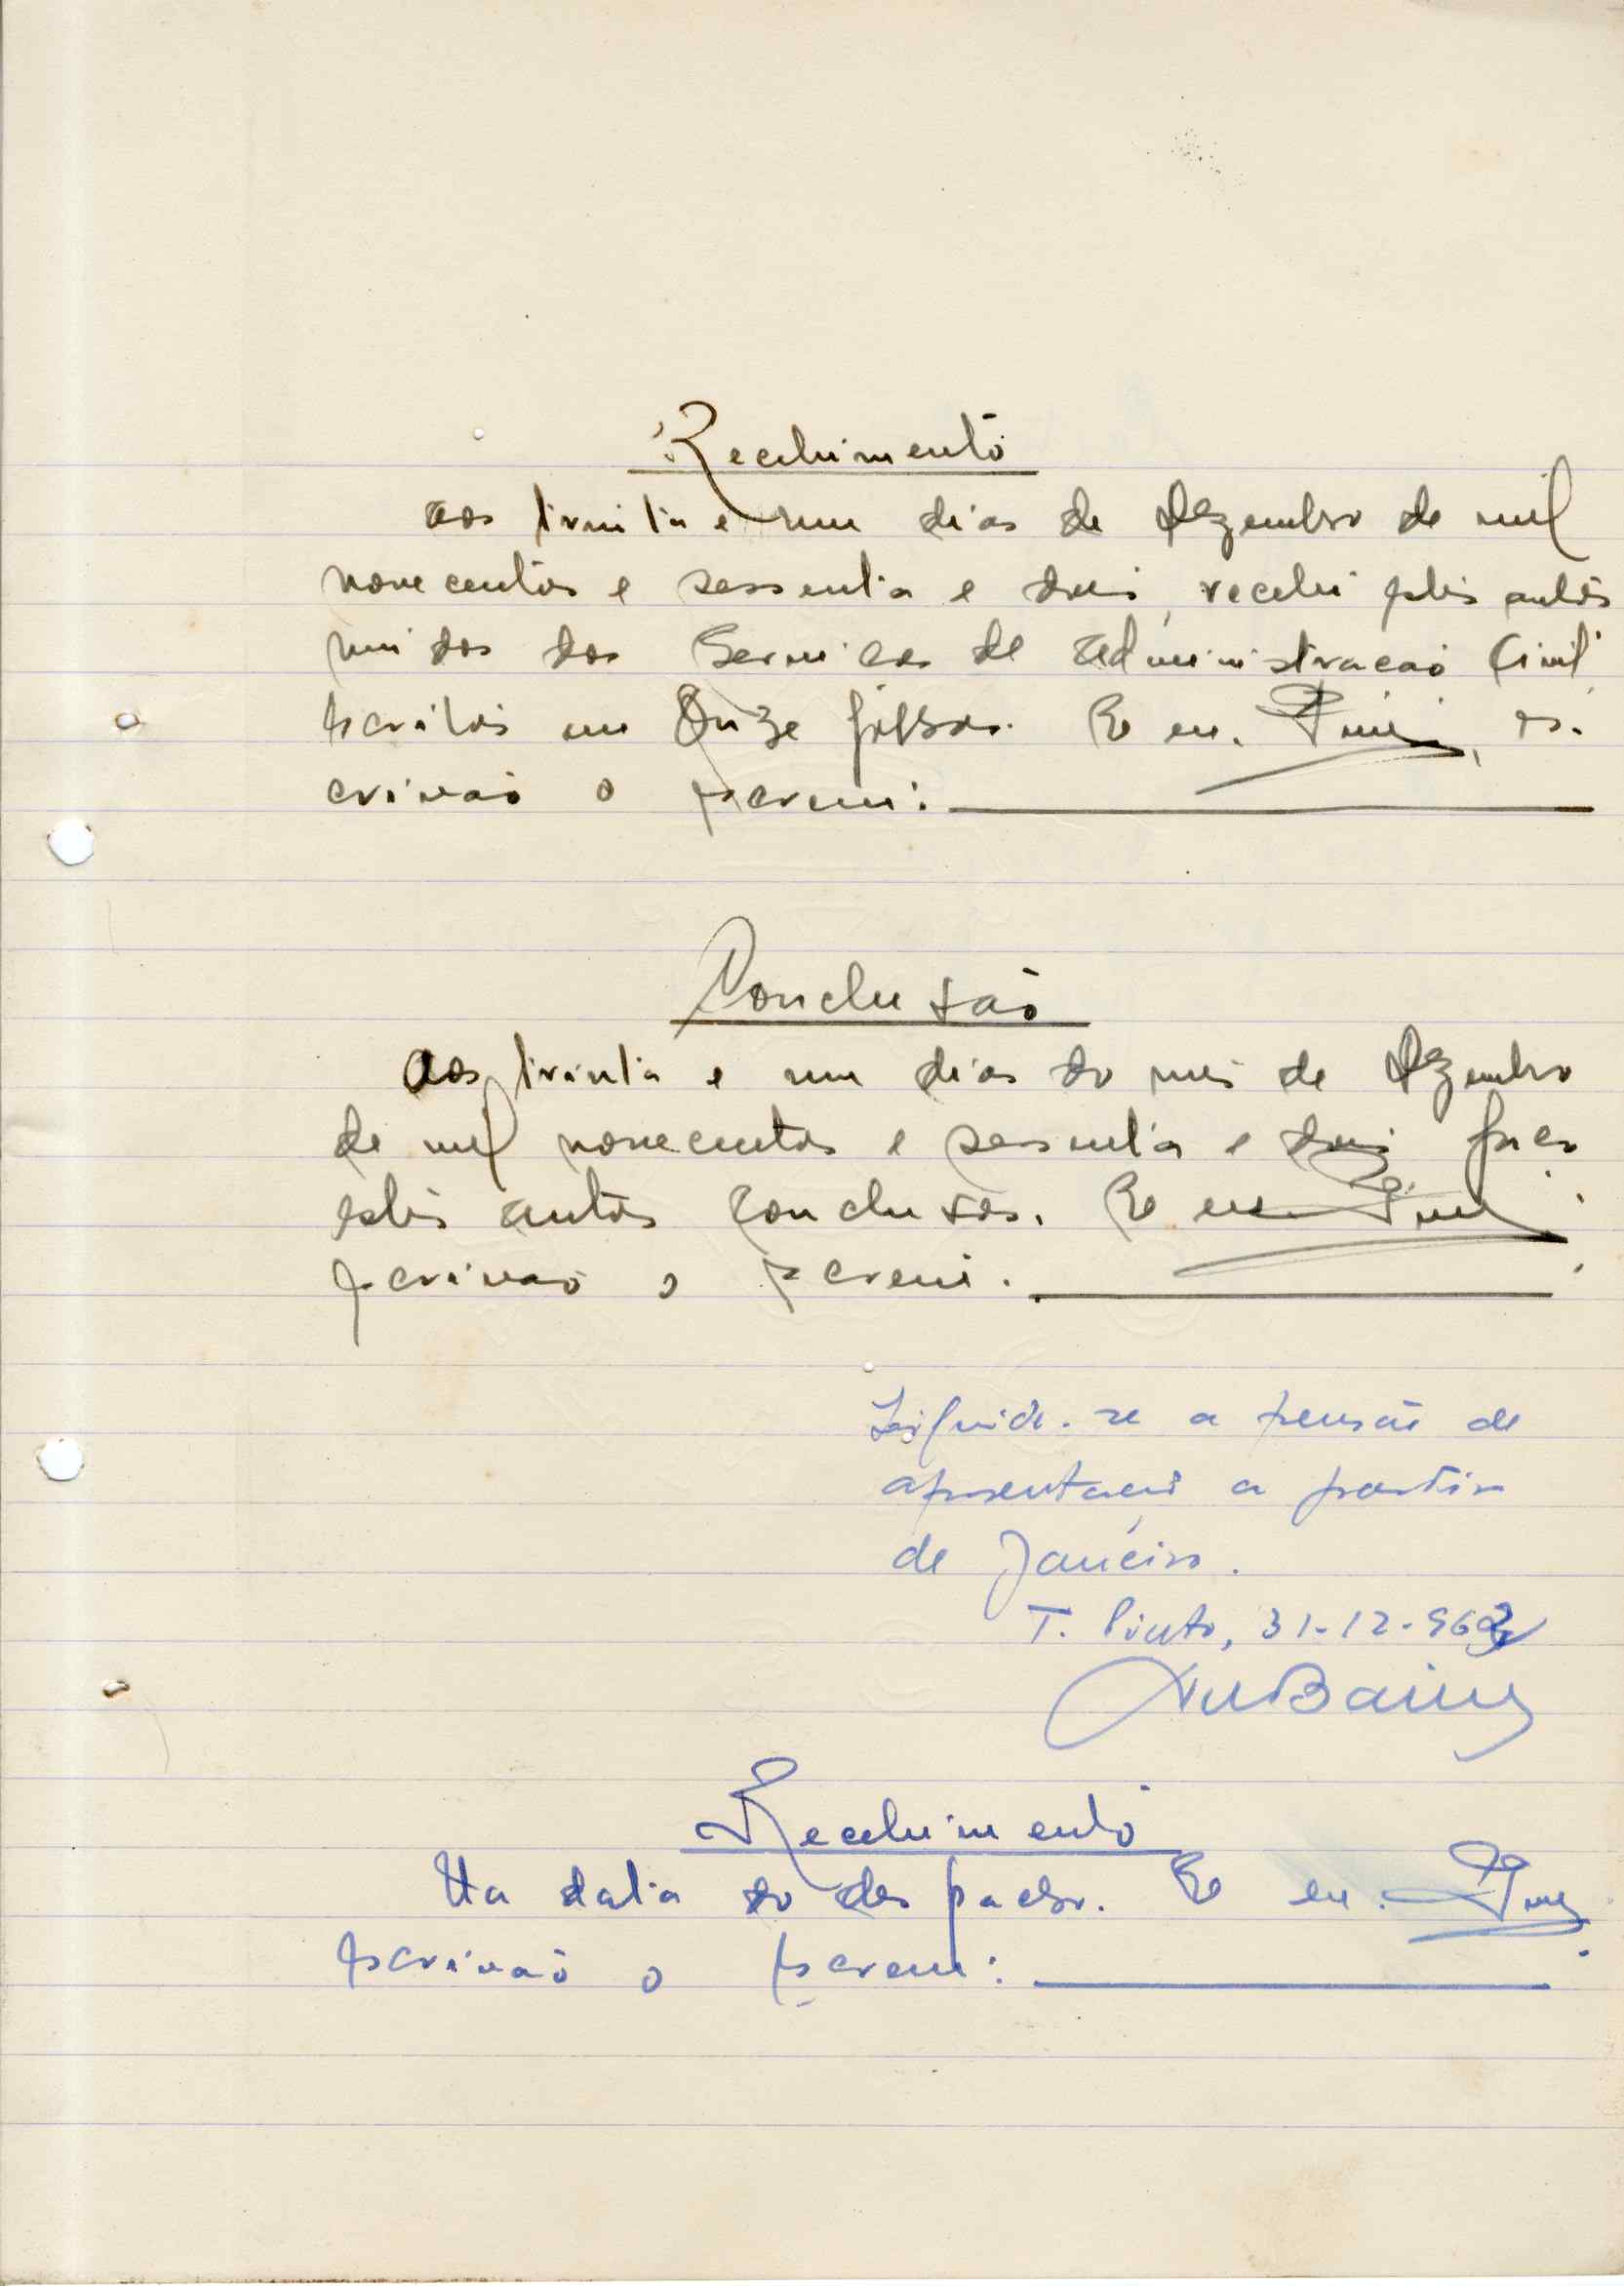 Recebimento
Aos trinta e um dias de Dezembro de mil
novecentos e sessenta e dois, recebi estes autos
vindos dos Serviços de Administração Civil,
escritos em onze folhas. E eu, es-
crivão o escrevi:
Conclusão
Aos trinta e um dias do mês de Dezembro
de mil novecentos e sessenta e dois faço
estes autos conclusos. E eu
escrivão o escrevi.
Liquide-se a pensão de
aposentação a partir
de Janeiro.
T. Pinto, 31-12-962
Recebimento
Na data do despacho. E eu.
escrivão o escrevi: